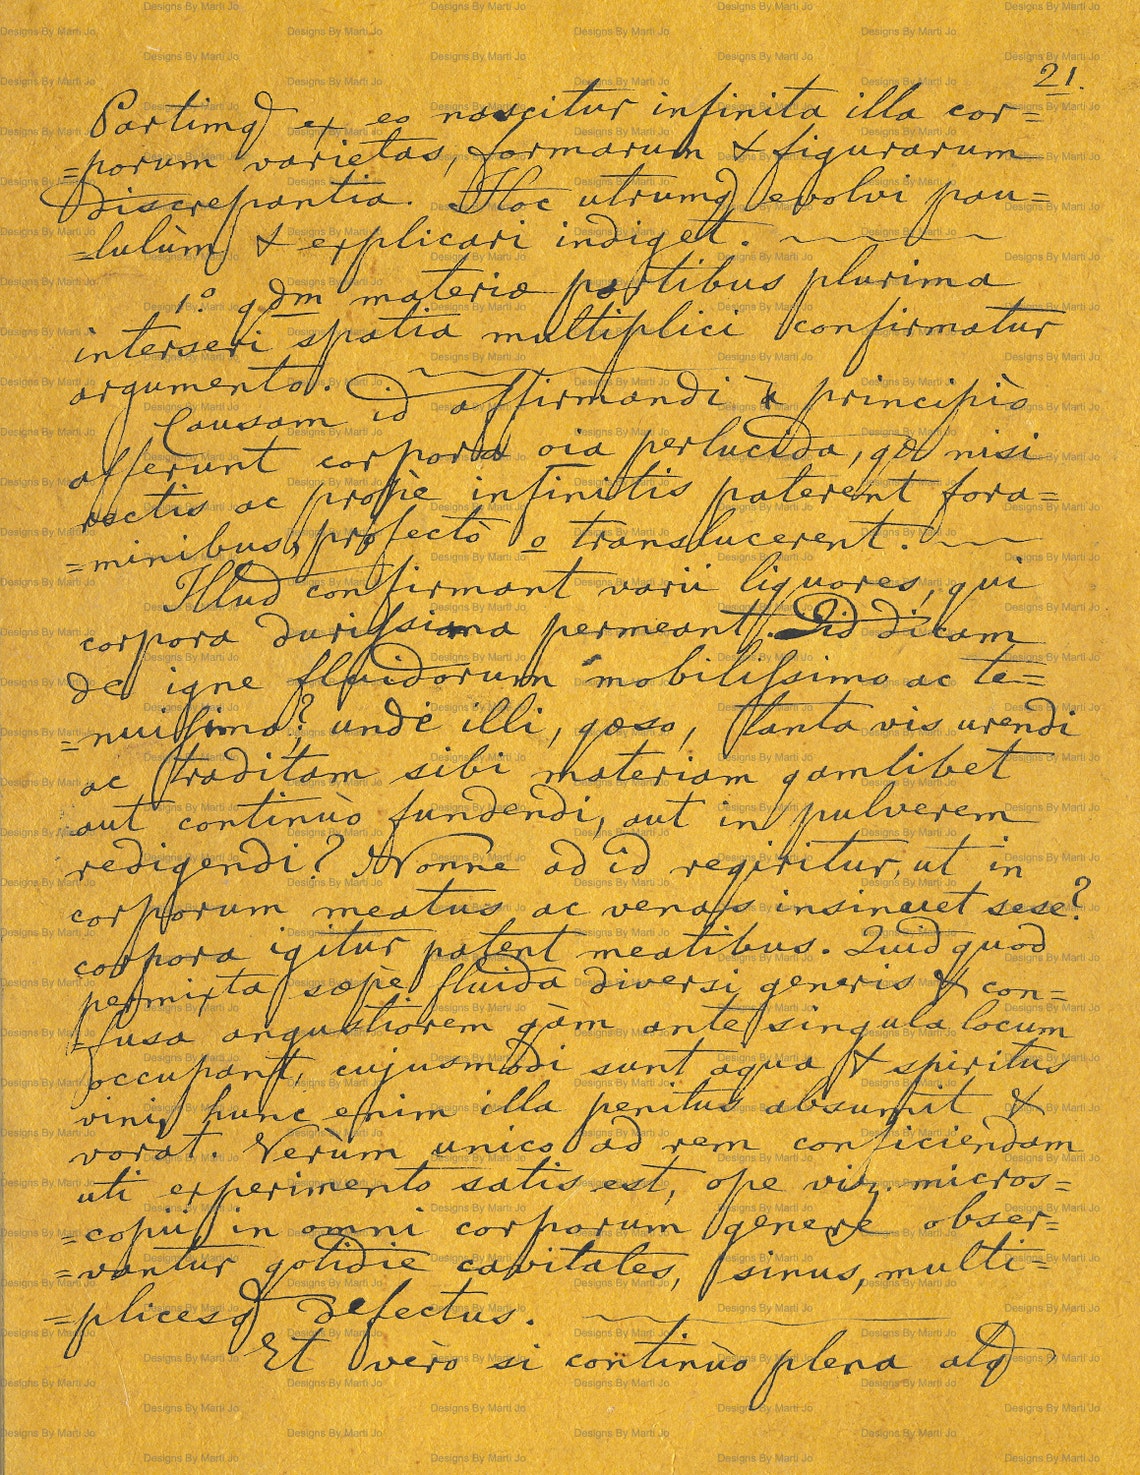 21.
Partimq ex eo nascitur infinita illa cor=
=porum varietas, formarum & figurarum
discrepantia. Hoc utrumq evolvi pau=
=lulùm & explicari indiget.
1.º qdm materiæ partibus plurima
interseri spatia multiplici confirmatur
argumento.
Causam id affirmandi à principiò
afferunt corpora oia perlucida, qæ nisi
rectis ac propè infinitis paterent fora=
=minibus, profectò o translucerent.
Illud confirmant varii liquores, qui
corpora durissima permeant. Qid dicam
de igne fluidorum mobilissimo ac te=
=nuissimo? undè illi, qæso, tanta vis urendi
ac traditam sibi materiam qamlibet
aut continùo fundendi, aut in pulverem
redigendi? Nonne ad id reqiritur, ut in
corporum meatus ac venas insinuet sese?
corpora igitur patent meatibus. Quid quod
permixta sæpè fluida diversi generis & con=
=fusa angustiorem qàm ante singula locum
occupant, cujusmodi sunt aqua & spiritus
vini, hunc enim illa penitus absumit &
vorat. Verùm unico ad rem conficiendam
uti experimento satis est, ope viz. micros=
=copii, in omni corporum genere obser=
=vantur qotidie cavitates, sinus, multi=
=plicesq defectus.
Et vèro si continùo plena atq